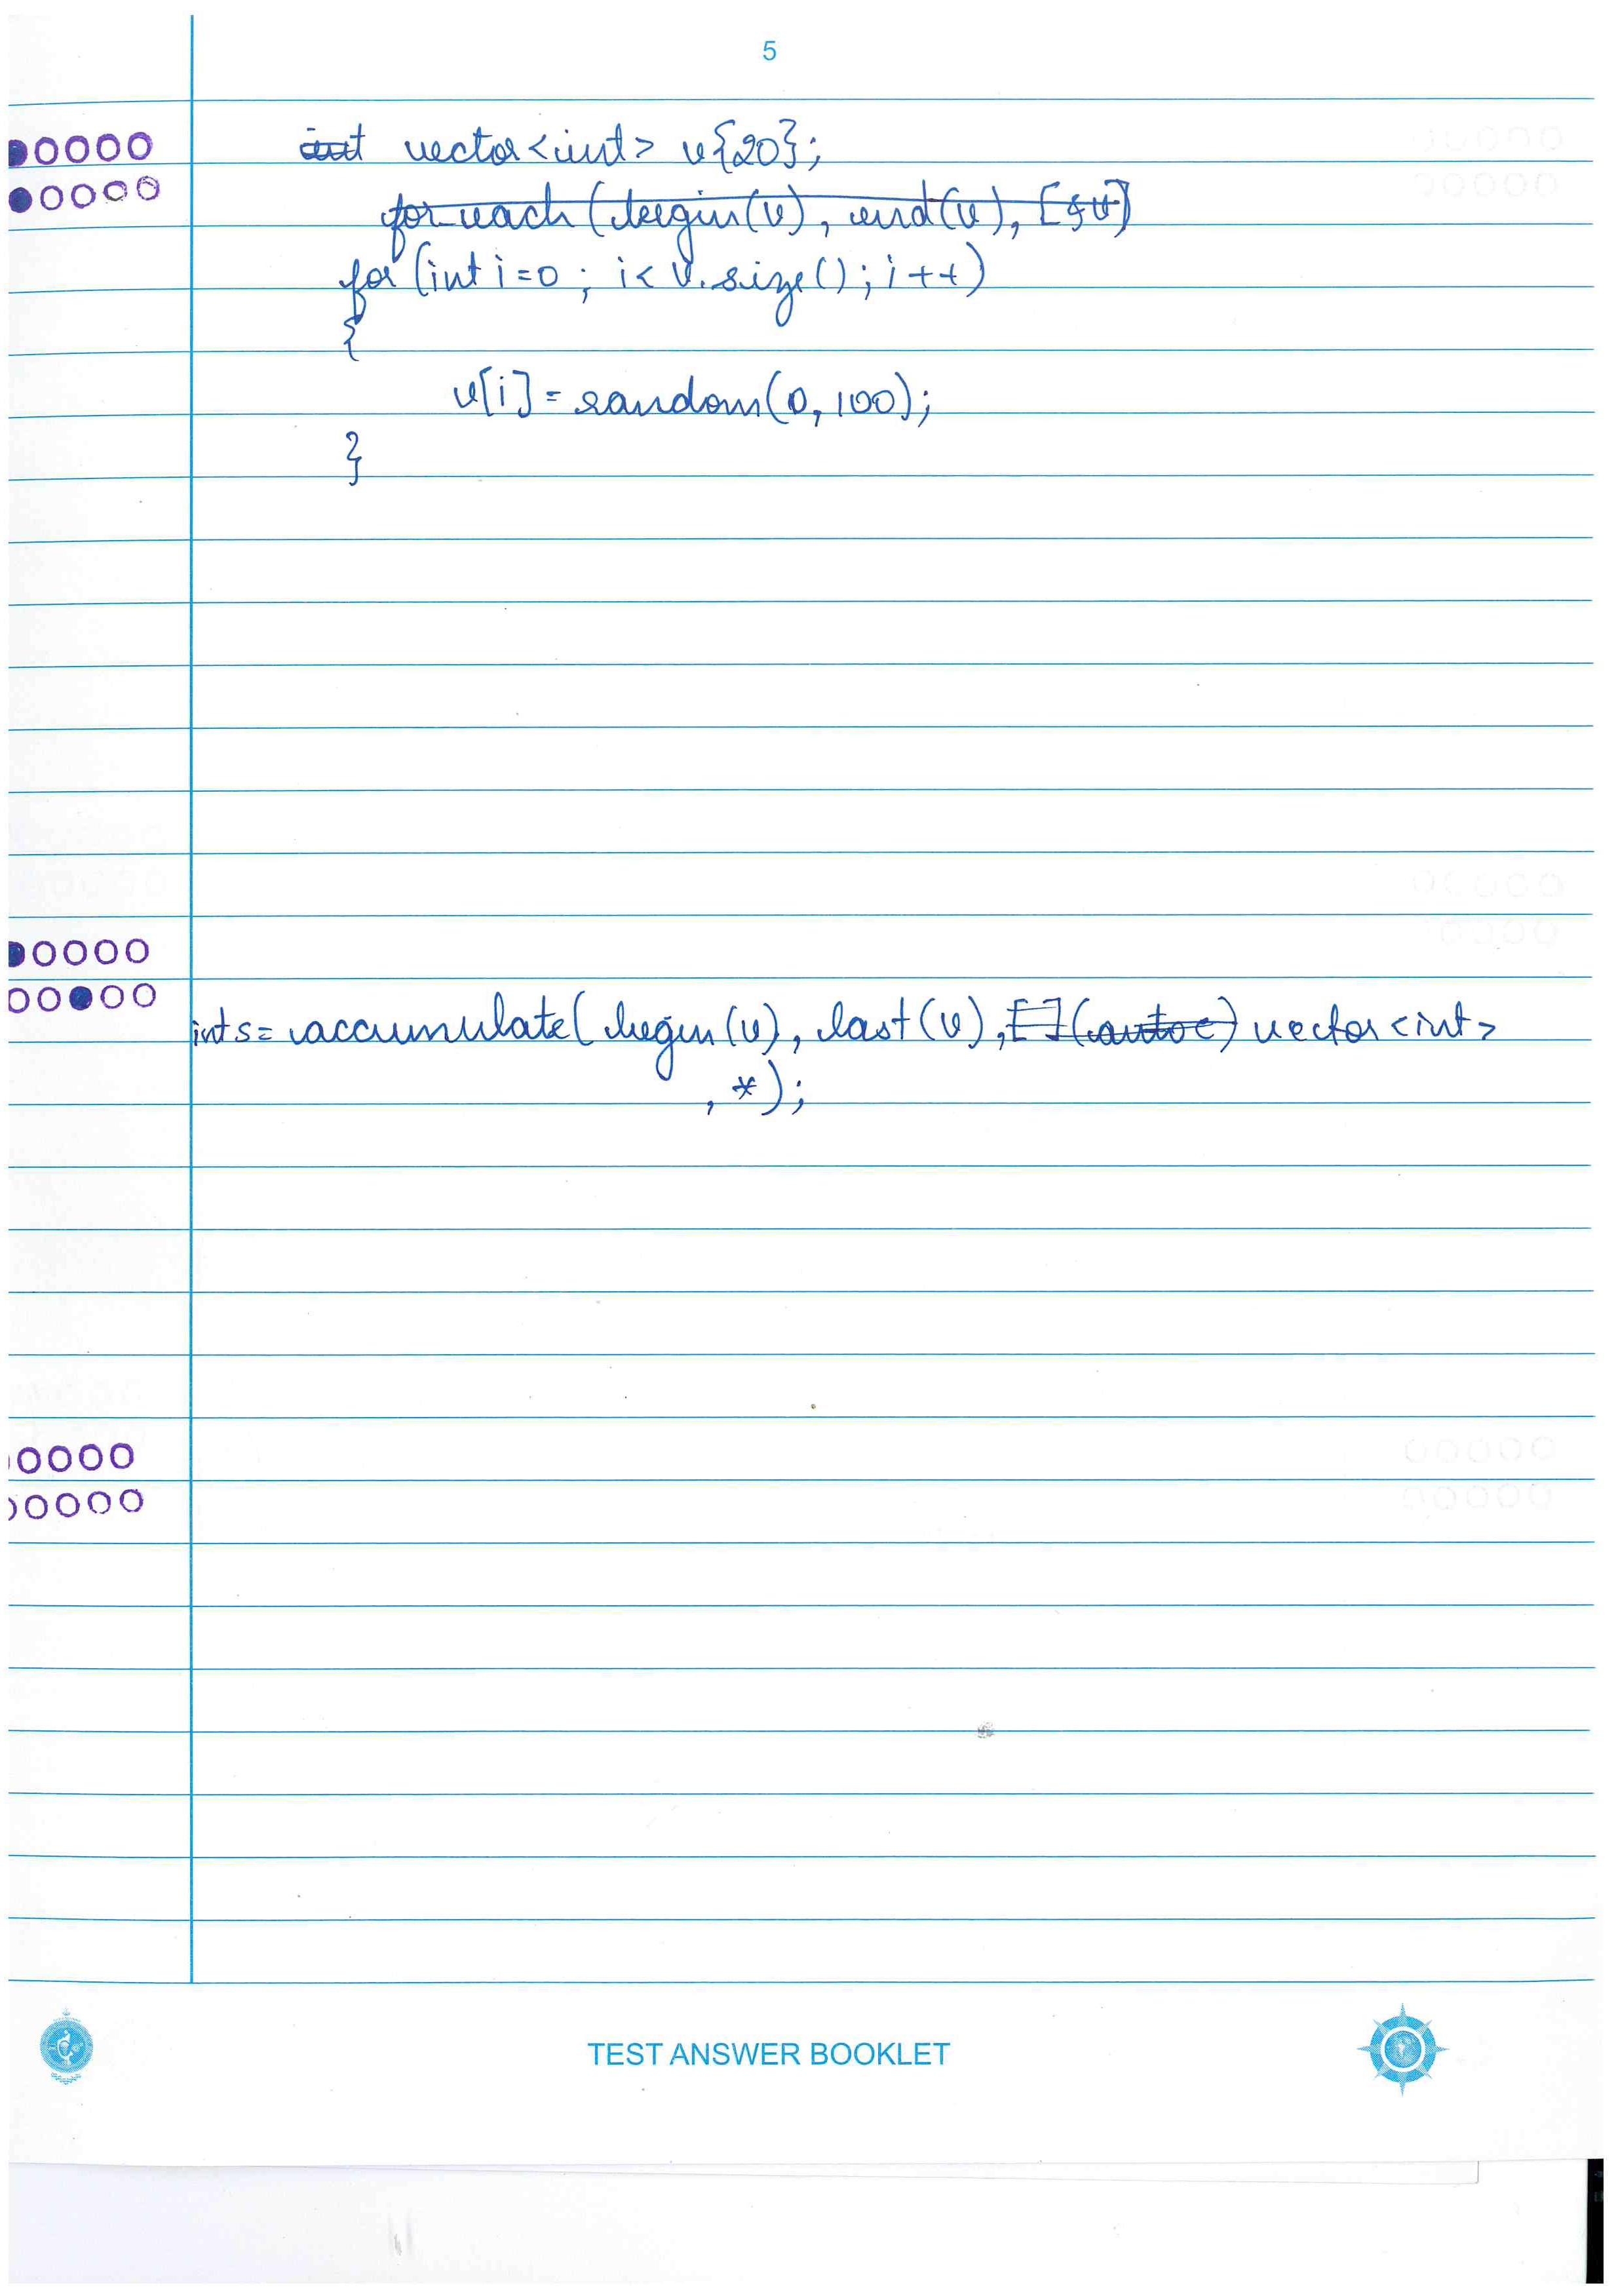 5
int vector<int> v{20};
for each (begin(v), end(v), [&v]
for (int i=0 ; i< v.size() ; i++)
{
v[i] = random(0, 100);
}
int s = accumulate( begin(v), last(v), [ ](auto c) vector<int>
, *);
TEST ANSWER BOOKLET